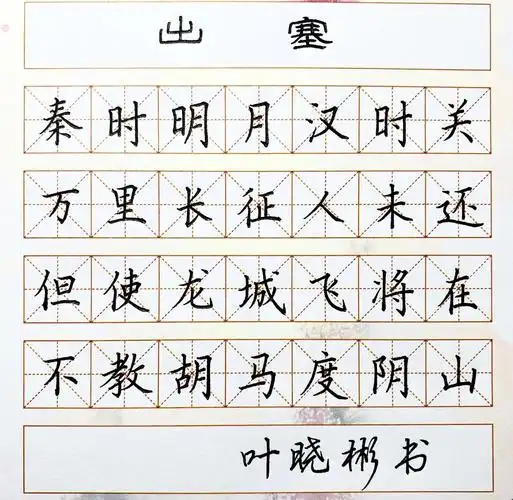 出塞
秦时明月汉时关
万里长征人未还
但使龙城飞将在
不教胡马度阴山
叶晓彬书